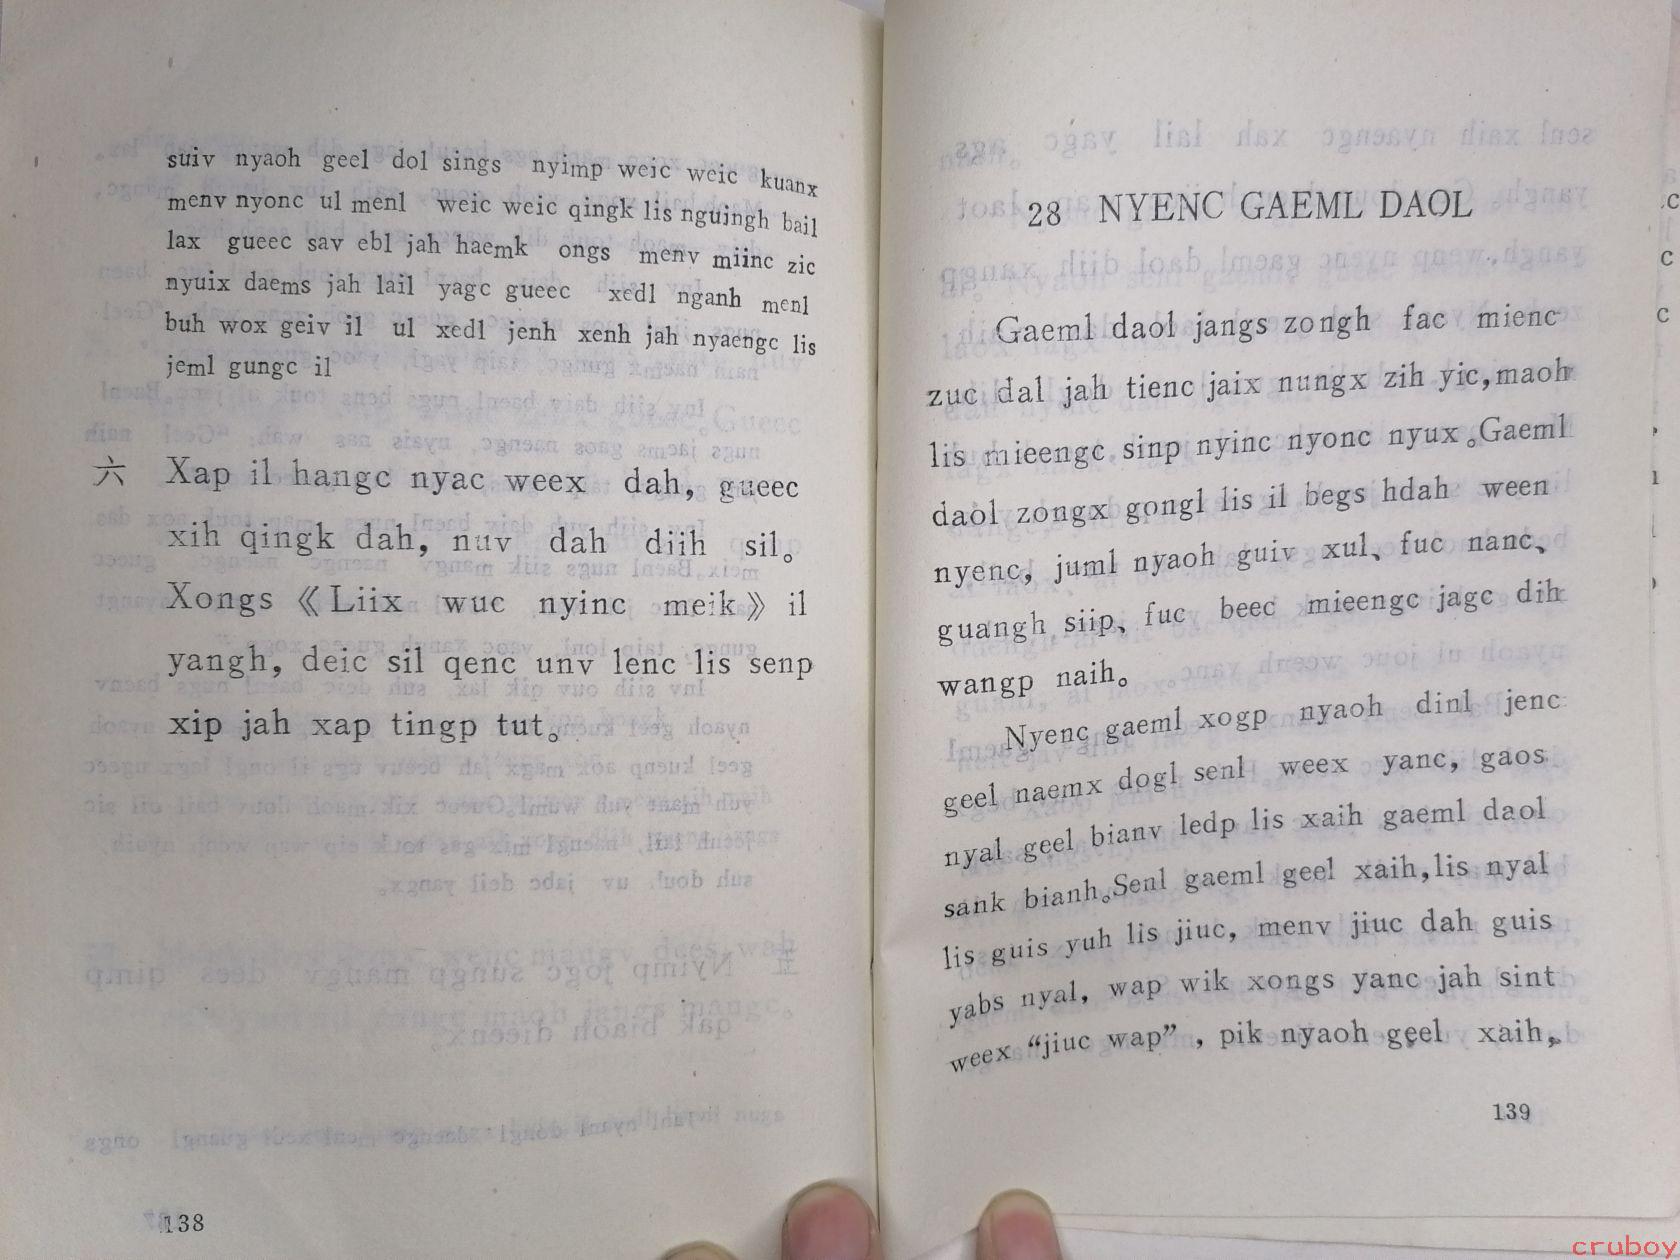 suiv nyaoh geel dol sings nyimp weic weic kuanx
menv nyonc ul menl weic weic qingk lis nguingh bail
lax gueec sav ebl jah haemk ongs menv miinc zic
nyuix daems jah lail yagc gueec xedl nganh menl
buh wox geiv il ul xedl jenh xenh jah nyaengc lis
jeml gungc il
六 Xap il hangc nyac weex dah, gueec
xih qingk dah, nuv dah diih sil。
Xongs 《Liix wuc nyinc meik》 il
yangh, deic sil qenc unv lenc lis senp
xip jah xap tingp tut。
138
28 NYENC GAEML DAOL
Gaeml daol jangs zongh fac mienc
zuc dal jah tienc jaix nungx zih yic,maoh
lis mieengc sinp nyinc nyonc nyux。Gaeml
daol zongx gongl lis il begs hdah ween
nyenc, juml nyaoh guiv xul、fuc nanc、
guangh siip、fuc beec mieengc jagc dih
wangp naih。
Nyenc gaeml xogp nyaoh dinl jenc
geel naemx dogl senl weex yanc, gaos
nyal geel bianv ledp lis xaih gaeml daol
sank bianh。Senl gaeml geel xaih,lis nyal
lis guis yuh lis jiuc, menv jiuc dah guis
yabs nyal, wap wik xongs yanc jah sint
weex “jiuc wap”, pik nyaoh geel xaih,
139
cruboy